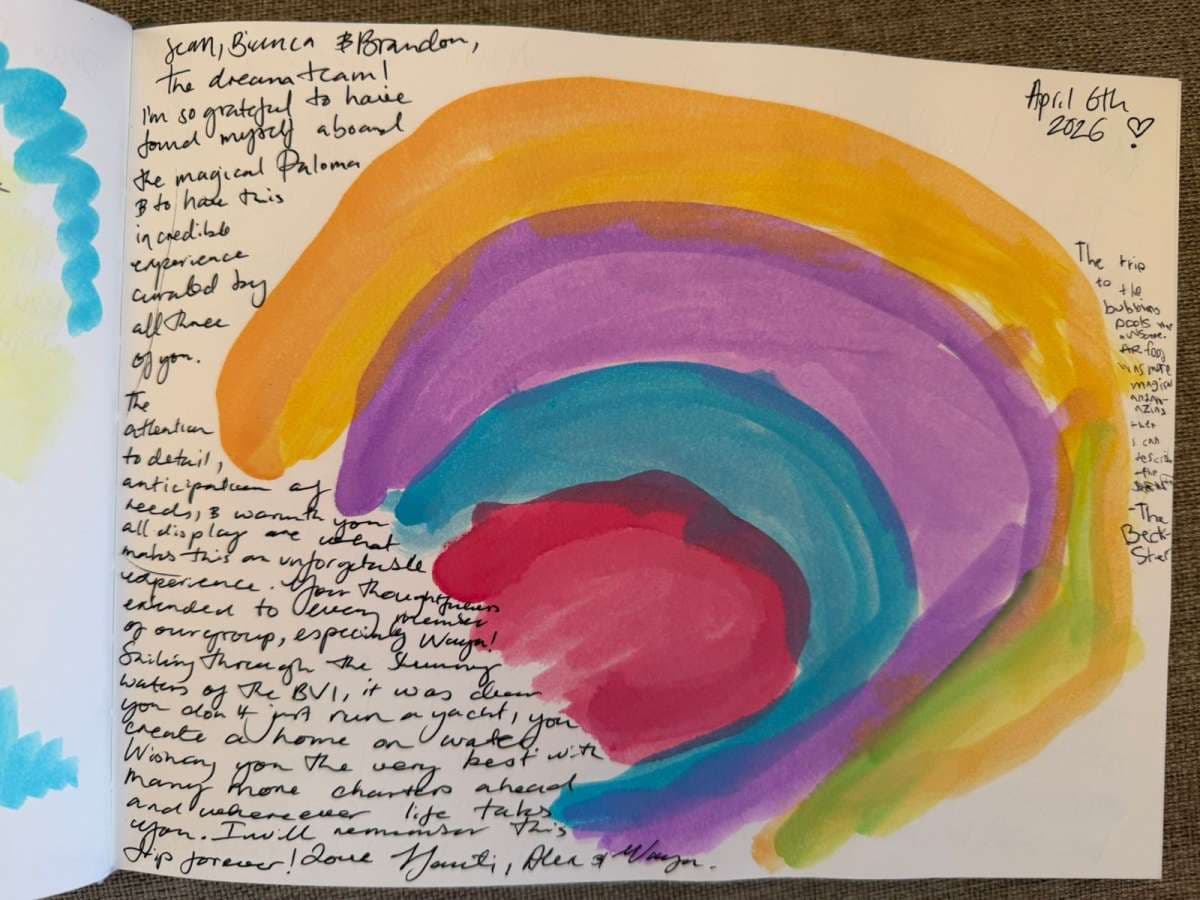 Sean, Bianca & Brandon,
The dream team!
I'm so grateful to have
found myself aboard
the magical Paloma
& to have this
incredible
experience
curated by
all three
of you.
The
attention
to detail,
anticipation of
needs, & warmth you
all display are what
makes this an unforgettable
experience. Your thoughtfulness
extended to every member
of our group, especially Wayn!
Sailing through the stunning
waters of the BVI, it was clear
you don't just run a yacht, you
create a home on water.
Wishing you the very best with
many more charters ahead
and whereever life takes
you. I will remember this
trip forever! Love Alex &
April 6th
2026 ♡
The trip
to the
bubbling
pools
awsome.
food
was more
magical
and am
azing
then
i can
the
-The
Beck-
Ster